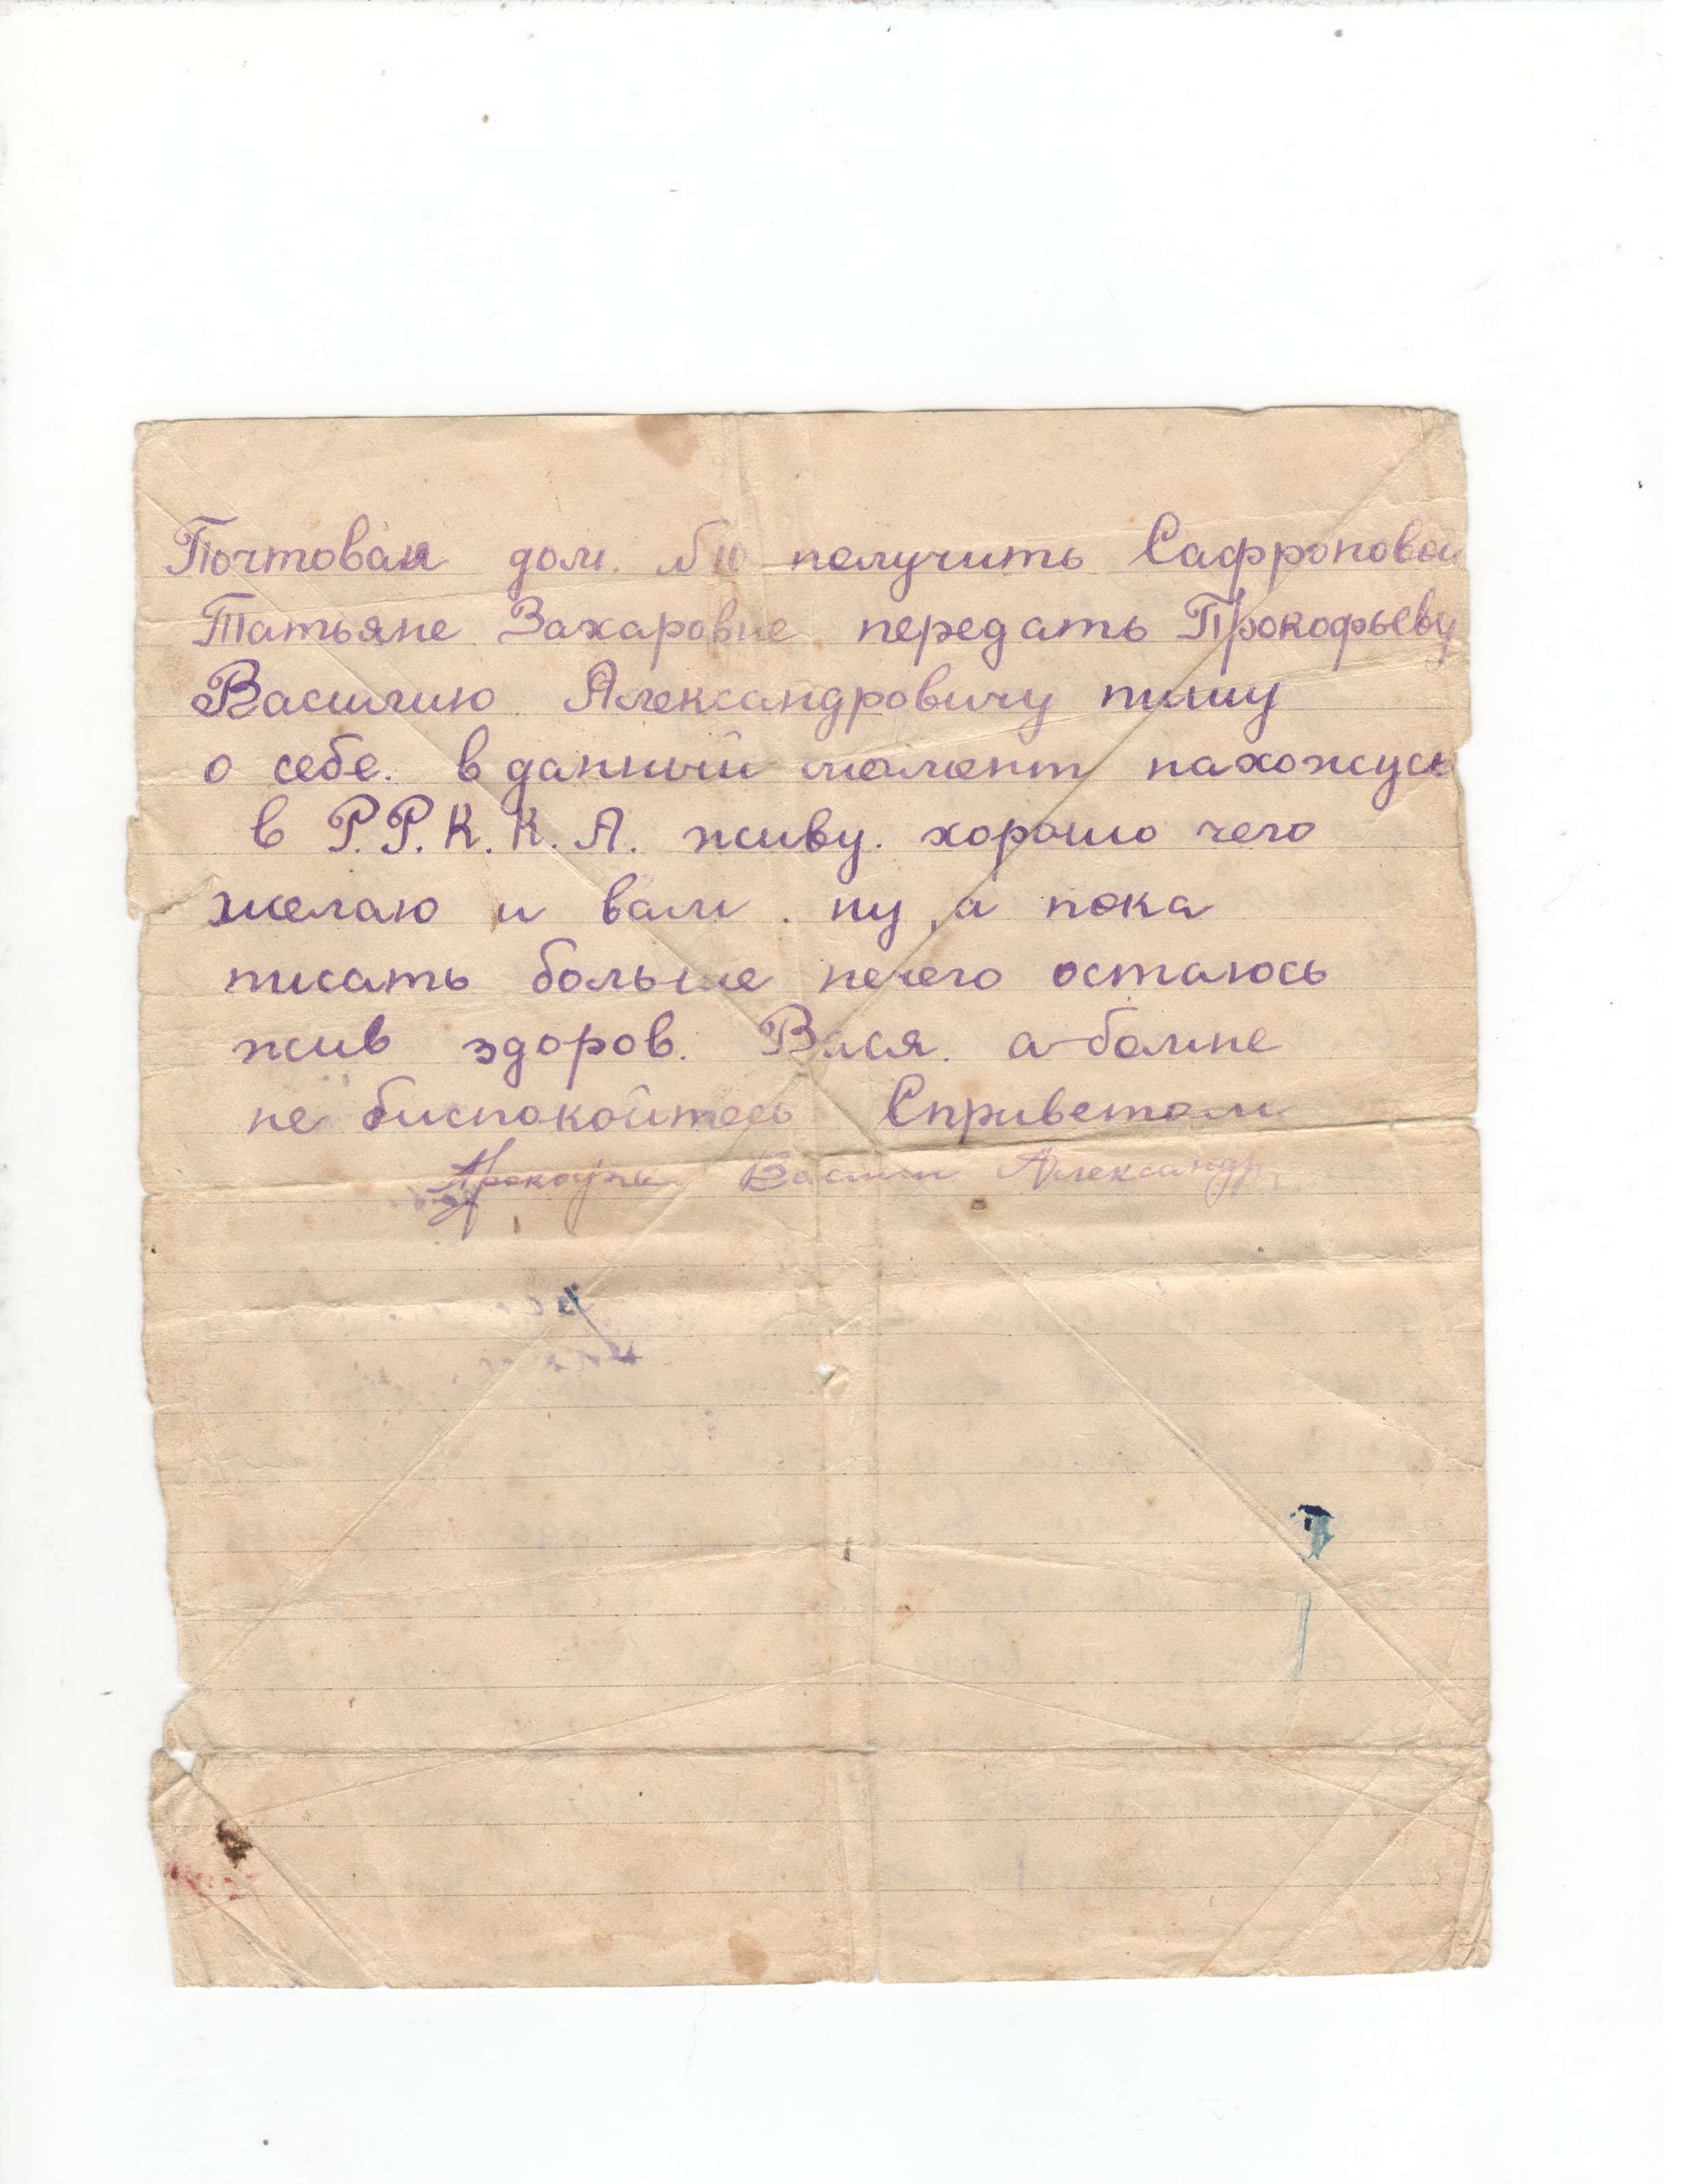 Почтовая дом. №10 получить Сафроновой
Татьяне Захаровне передать Прокофьеву
Василию Александровичу пишу
о себе. в данный момент нахожусь
в Р.Р.К.К.А. живу. хорошо чего
желаю и вам. ну, а пока
писать больше нечего остаюсь
жив здоров. Вася. а-бомне
не биспокойтесь Сприветом
Василий Александр